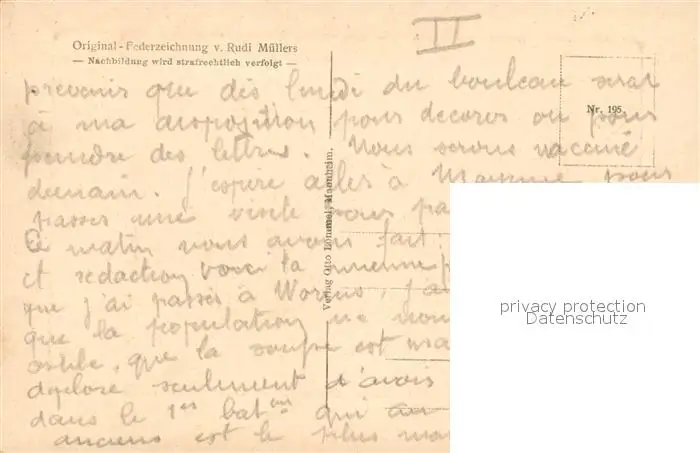 II
Original-Federzeichnung v. Rudi Müllers
— Nachbildung wird strafrechtlich verfolgt —
Nr. 195
Verlag Otto Mannheim.
prévenir que dès lundi du bouleau serai
à ma disposition pour décorer ou pour
peindre des lettres. Nous serons vacciné
demain. J'espère aller à pour
passer une visite pour pa
Ce matin nous avons fait
et rédaction voici la mienne p
que j'ai passés à Worms, j'a
que la population ne nou
ostile, que la soupe est ma
déplore seulement d'avoir
dans le 1er baton qui
anciens est le plus mau
privacy protection
Datenschutz